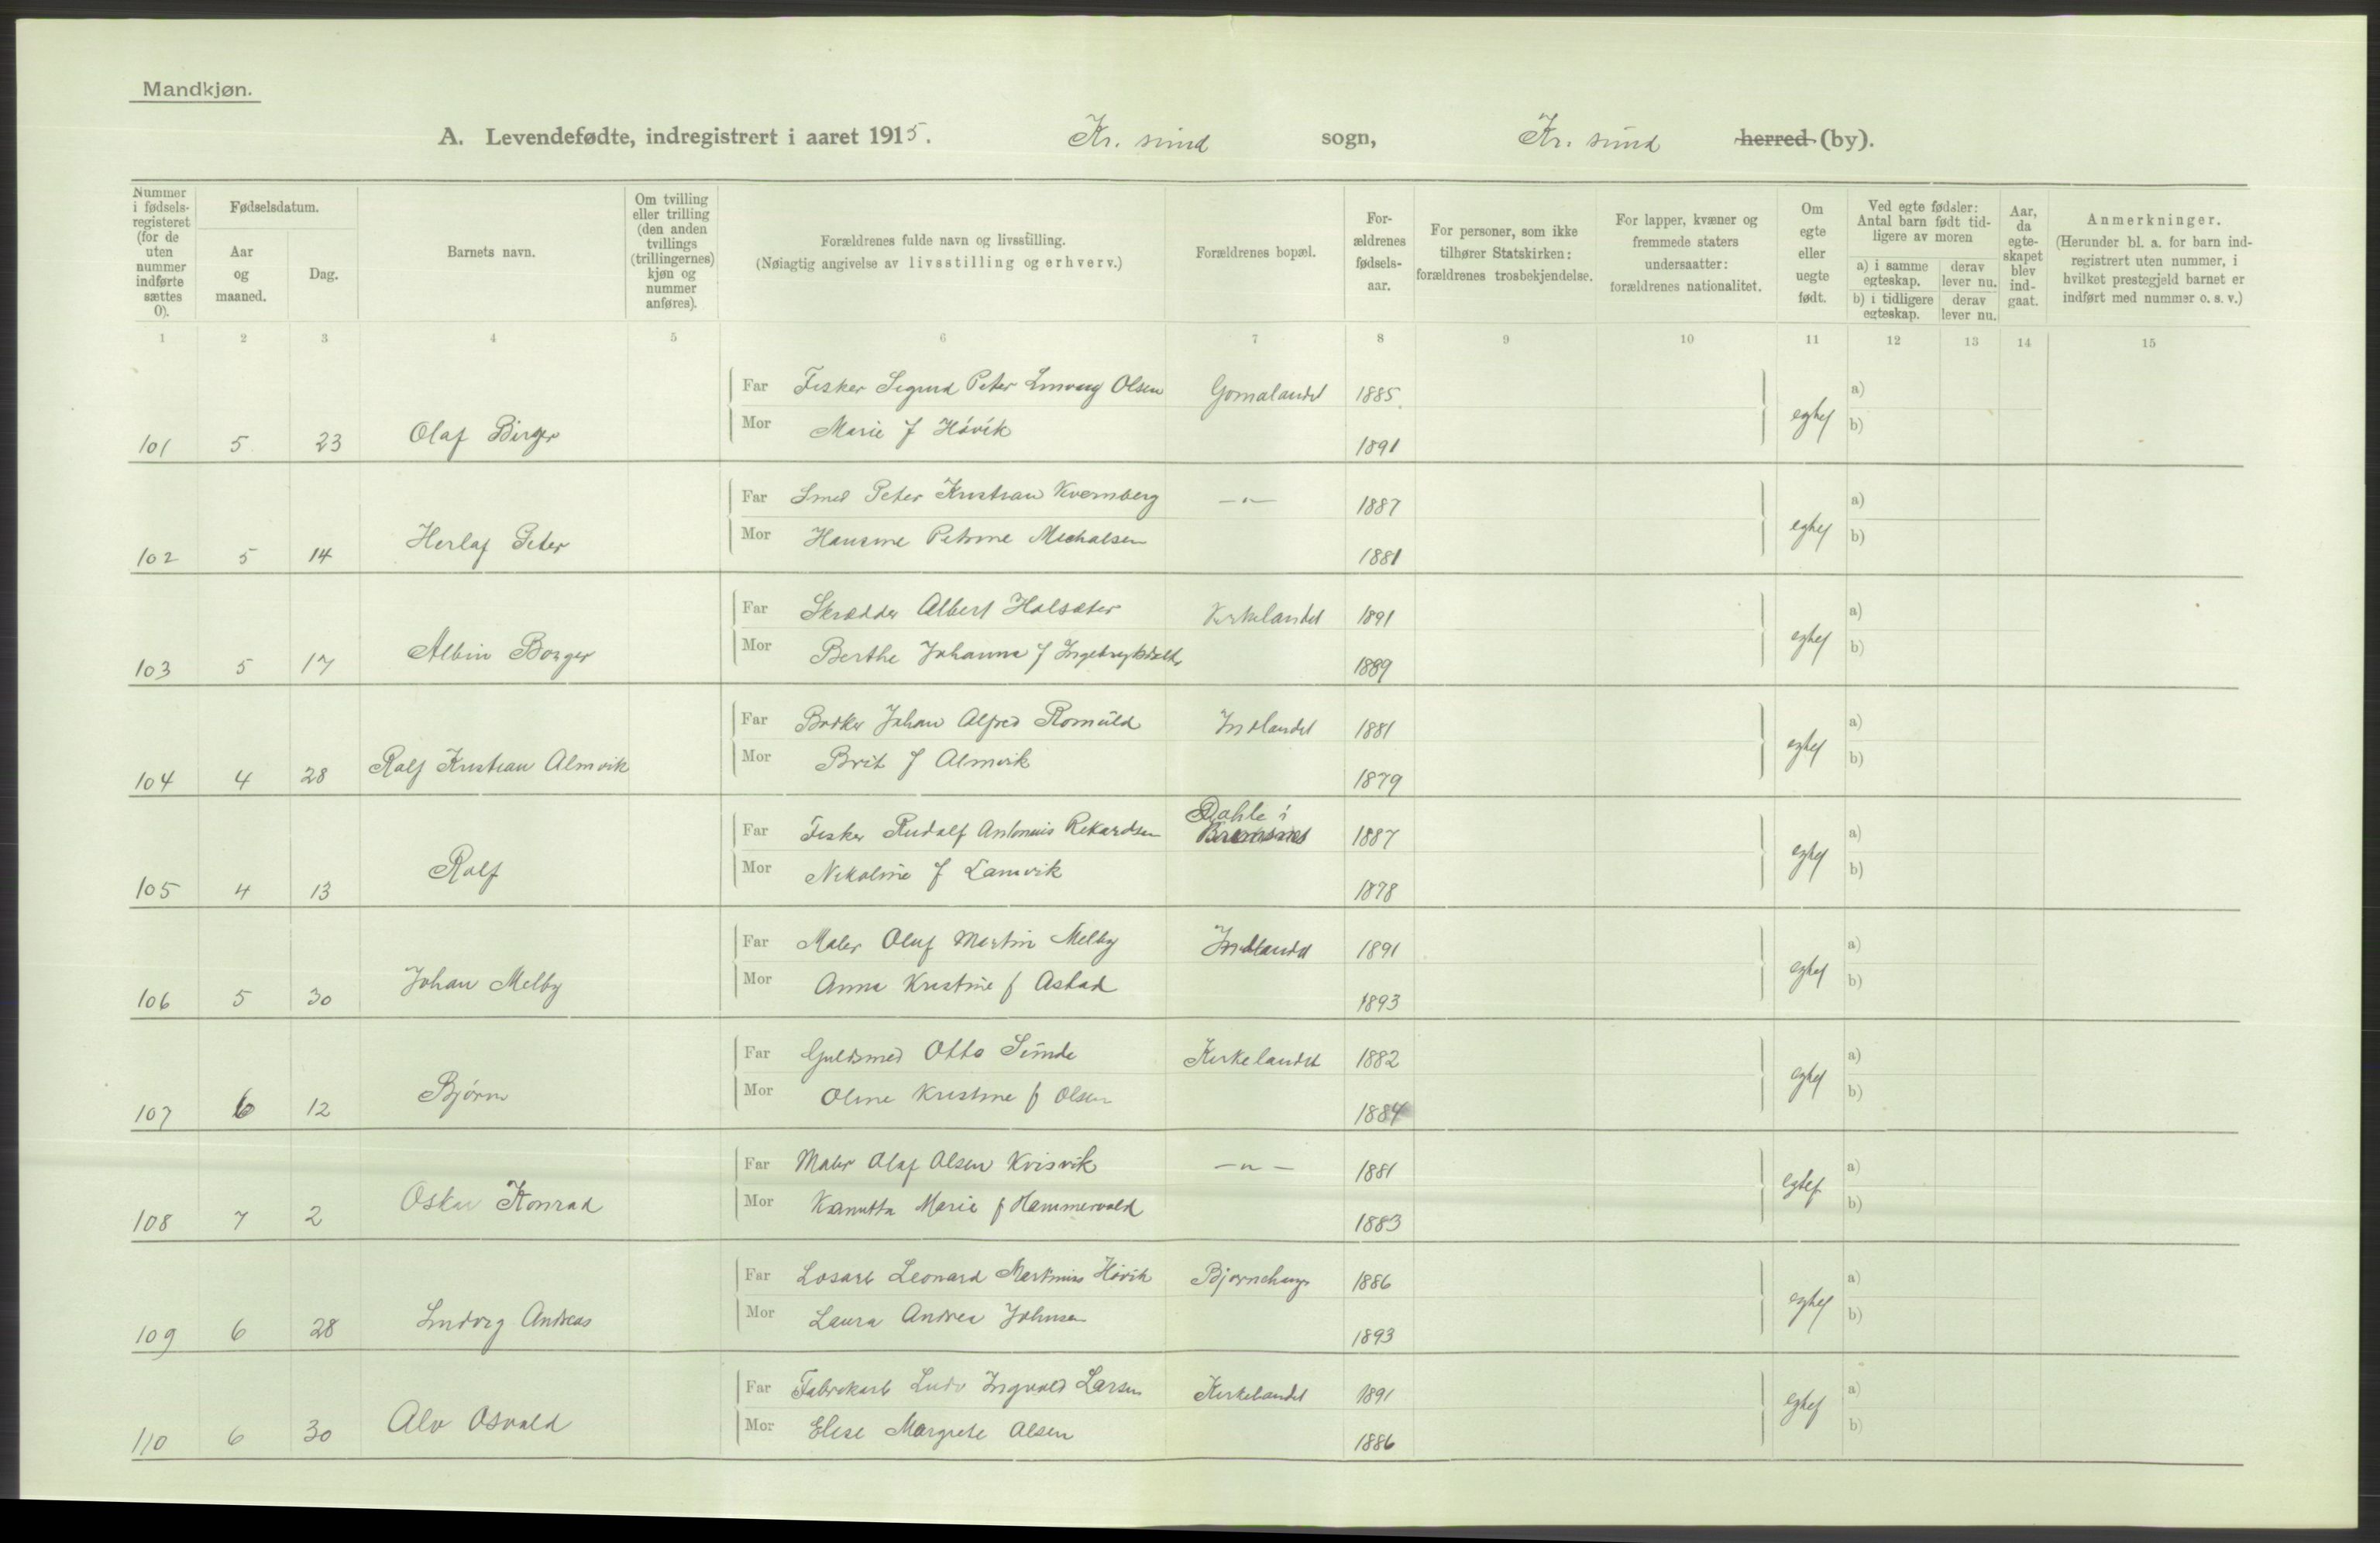 Mandkjøn.
A. Levendefødte, indregistrert i aaret 1915. Kr. sund sogn, Kr. sund herred (by).
Nummer i fødsels-registeret (for de uten nummer indførte sættes 0).
Fødselsdatum.
Aar og maaned.
Dag.
Barnets navn.
Om tvilling eller trilling (den anden tvillings (trillingernes) kjøn og nummer anføres).
Forældrenes fulde navn og livsstilling.
(Nøiagtig angivelse av livsstilling og erhverv.)
Forældrenes bopæl.
For-ældrenes fødsels-aar.
For personer, som ikke tilhører Statskirken: forældrenes trosbekjendelse.
For lapper, kvæner og fremmede staters undersaatter: forældrenes nationalitet.
Om egte eller uegte født.
Ved egte fødsler: Antal barn født tid-ligere av moren
a) i samme egteskap. derav lever nu.
b) i tidligere egteskap. derav lever nu.
Aar, da egte-skapet blev ind-gaat.
Anmerkninger.
(Herunder bl. a. for barn ind-registrert uten nummer, i hvilket prestegjeld barnet er indført med nummer o. s. v.)
1 2 3 4 5 6 7 8 9 10 11 12 13 14 15
Far Fisker Sigurd Peter Olsen Gomalandet 1885 a)
101 5 23 Olaf Birger Mor Marie f Hövik 1891 egtef b)
Far Smed Peter Kristian Kvernberg —"— 1887 a)
102 5 14 Herlaf Peter Mor Hansine Petrine Michalsen 1881 egtef b)
Far Skrædder Albert Halsæter Kirkelandet 1891 a)
103 5 17 Albin Borger Mor Berthe Johanna f 1889 egtef b)
Far Johan Alfred Romuld Indlandet 1881 a)
104 4 28 Ralf Kristian Almvik Mor Brit f Almvik 1879 egtef b)
Far Fisker Rudolf Antonius Rikardsen Dahle i Bremsnes 1887 a)
105 4 13 Ralf Mor Nikoline f Lamvik 1878 egtef b)
Far Maler Oluf Martin Melby Indlandet 1891 a)
106 5 30 Johan Melby Mor Anna Kristine f Astad 1893 egtef b)
Far Guldsmed Otto Sunde Kirkelandet 1882 a)
107 6 12 Bjørn Mor Oline Kristine f Olsen 1884 egtef b)
Far Maler Olaf Olsen Kvisvik —"— 1881 a)
108 7 2 Oskar Konrad Mor Kanutta Marie f Hammervold 1883 egtef b)
Far Losarb Leonard Martinius Hövik 1886 a)
109 6 28 Ludvig Andreas Mor Laura Andrea Johnsen 1893 egtef b)
Far Fabrikarb Ludv Ingvald Larsen Kirkelandet 1891 a)
110 6 30 Alv Osvald Mor Elise Margrete Olsen 1886 egtef b)